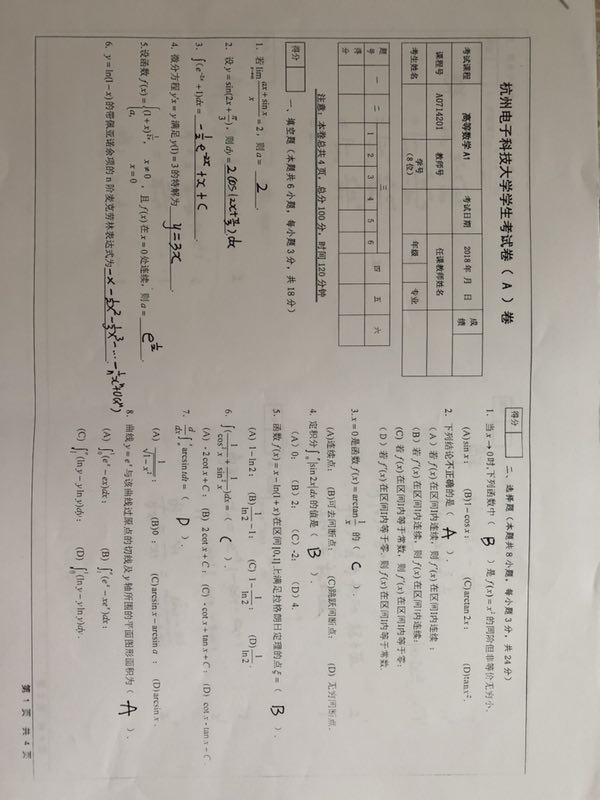 杭州电子科技大学学生考试卷（ A ）卷
考试课程 高等数学A1 考试日期 2018年 月 日 成绩
课程号 A0714201 教师号 任课教师姓名
考生姓名 学号（8位） 年级 专业
题号 一 二 三 1 2 3 4 5 6 四 五 六
得分
注意：本卷总共4页，总分100分，时间120分钟
得分
一、填空题（本题共6小题，每小题3分，共18分）
1．若 lim_{x→∞} (ax+sin x)/x = 2，则 a = 2 .
2．设 y = sin(2x + π/3)，则 dy = 2cos(2x+π/3)dx
3．∫(e^{-2x}+1)dx = -1/2 e^{-2x} + x + C
4．微分方程 y'x = y 满足 y(1) = 3 的特解为 y=3x .
5.设函数 f(x) = { (1+x)^{1/2x}, x≠0 ; a, x=0 ，且 f(x) 在 x=0 处连续，则 a = e^{1/2} .
6．y = ln(1-x) 的带佩亚诺余项的 n 阶麦克劳林表达式为 -x - 1/2 x² - 1/3 x³ - ··· - 1/n xⁿ + o(xⁿ)
得分
二、选择题（本题共8小题，每小题3分，共24分）
1．当 x→0 时,下列函数中（ B ）是 f(x) = x² 的同阶但非等价无穷小.
(A) sin x； (B) 1-cos x； (C) arctan 2x； (D) tan x².
2．下列结论不正确的是（ A ）.
（A）若 f(x) 在区间I内连续，则 f'(x) 在区间I内连续；
（B）若 f'(x) 在区间I内连续，则 f(x) 在区间I内连续；
(C) 若 f(x) 在区间I内等于常数，则 f'(x) 在区间I内等于零；
（D）若 f'(x) 在区间I内等于零. 则 f(x) 在区间I内等于常数.
3.x=0 是函数 f(x) = arctan 1/x 的（ C ）.
(A)连续点； (B)可去间断点； (C)跳跃间断点； (D) 无穷间断点.
4．定积分 ∫_0^π |sin 2x|dx 的值是（ B ）.
（A）0； （B）2； （C）-2； （D）4.
5．函数 f(x) = x - ln(1+x) 在区间 [0,1] 上满足拉格朗日定理的点 ξ =（ B ）.
(A) 1-ln 2； (B) 1/ln2 -1； (C) 1- 1/ln2； (D) 1/ln2.
6．∫(1/cos²x + 1/sin²x)dx =（ C ）.
(A) -2cot x+C； (B) 2cot x+C； (C) -cot x+tan x+C； (D) cot x-tan x+C.
7．d/dx ∫_a^x arcsin t dt =（ D ）.
(A) 1/√(1-x²)； (B)0； (C) arcsin x - arcsin a； (D) arcsin x.
8．曲线 y = eˣ 与该曲线过原点的切线及 y 轴所围的平面图形面积为（ A ）.
(A) ∫_0^1 (eˣ-ex)dx； (B) ∫_1^e (eˣ-xeˣ)dx；
(C) ∫_1^e (ln y - y ln y)dy； (D) ∫_0^1 (ln y - y ln y)dy.
第 1 页 共 4 页